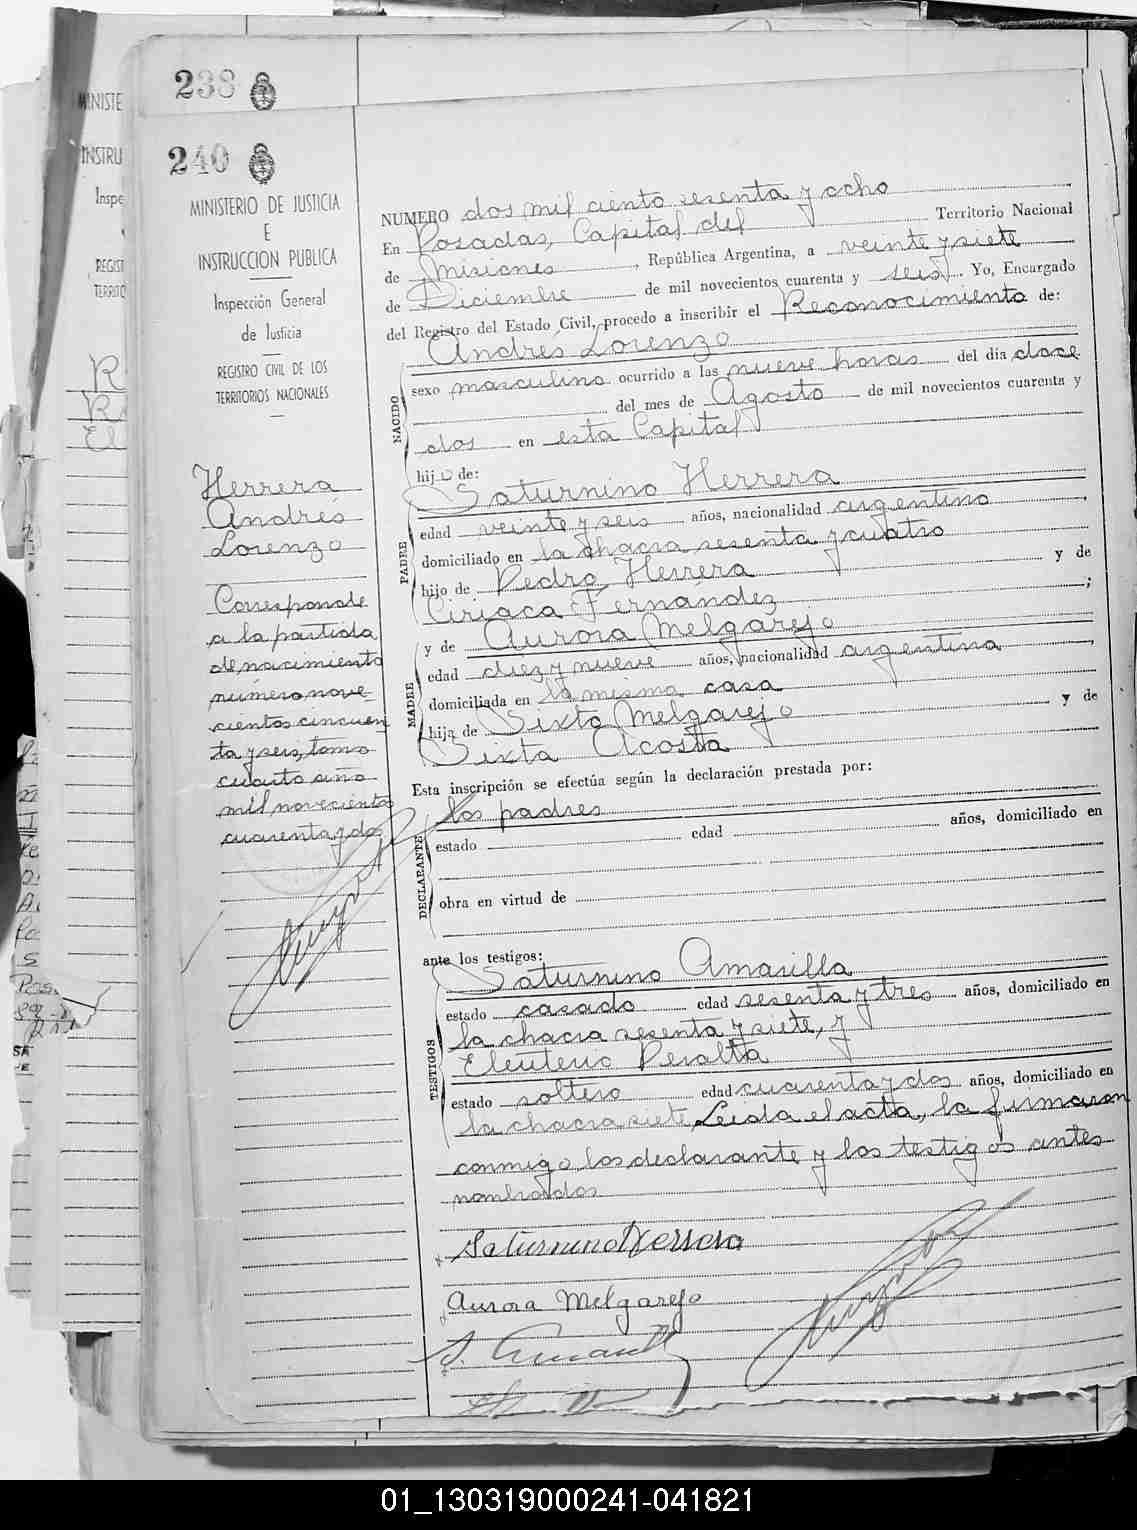 238
240
MINISTERIO DE JUSTICIA
E
INSTRUCCION PUBLICA
Inspección General
de Justicia
REGISTRO CIVIL DE LOS
TERRITORIOS NACIONALES
Herrera
Andrés
Lorenzo
Corresponde
a la partida
de nacimiento
número nove-
cientos cincuen
ta y seis, tomo
cuarto año
mil novecientos
cuarenta y dos
NUMERO dos mil ciento sesenta y ocho
En Posadas, Capital del Territorio Nacional
de Misiones, República Argentina, a veinte y siete
de Diciembre de mil novecientos cuarenta y seis. Yo, Encargado
del Registro del Estado Civil, procedo a inscribir el Reconocimiento de:
Andrés Lorenzo
NACIDO
sexo masculino ocurrido a las nueve horas del día doce
del mes de Agosto de mil novecientos cuarenta y
dos en esta Capital
hijo de:
Saturnino Herrera
PADRE
edad veinte y seis años, nacionalidad argentino,
domiciliado en la chacra sesenta y cuatro
hijo de Pedro Herrera y de
Ciriaca Fernandez;
y de Aurora Melgarejo
MADRE
edad diez y nueve años, nacionalidad argentina,
domiciliada en la misma casa
hija de Sixto Melgarejo y de
Sixta Acosta
Esta inscripción se efectúa según la declaración prestada por:
los padres
DECLARANTE
estado edad años, domiciliado en
obra en virtud de
ante los testigos:
Saturnino Amarilla
TESTIGOS
estado casado edad sesenta y tres años, domiciliado en
la chacra sesenta y siete, y
Eleuterio Peralta
estado soltero edad cuarenta y dos años, domiciliado en
la chacra siete. Leida el acta, la firmaron
conmigo los declarante y los testigos antes
nombrados
Saturnino Herrera
Aurora Melgarejo
S. Amarilla
01_130319000241-041821